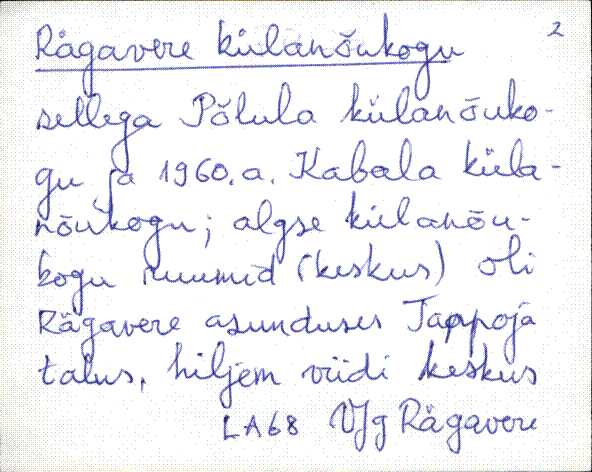 Rägavere külanõukogu 2
sellega Põlula külanõuko-
gu ja 1960.a. Kabala küla-
nõukogu; algse külanõu-
kogu ruumid (keskus) oli
Rägavere asunduses Tappoja
talus, hiljem viidi keskus
LA68 VJg Rägavere